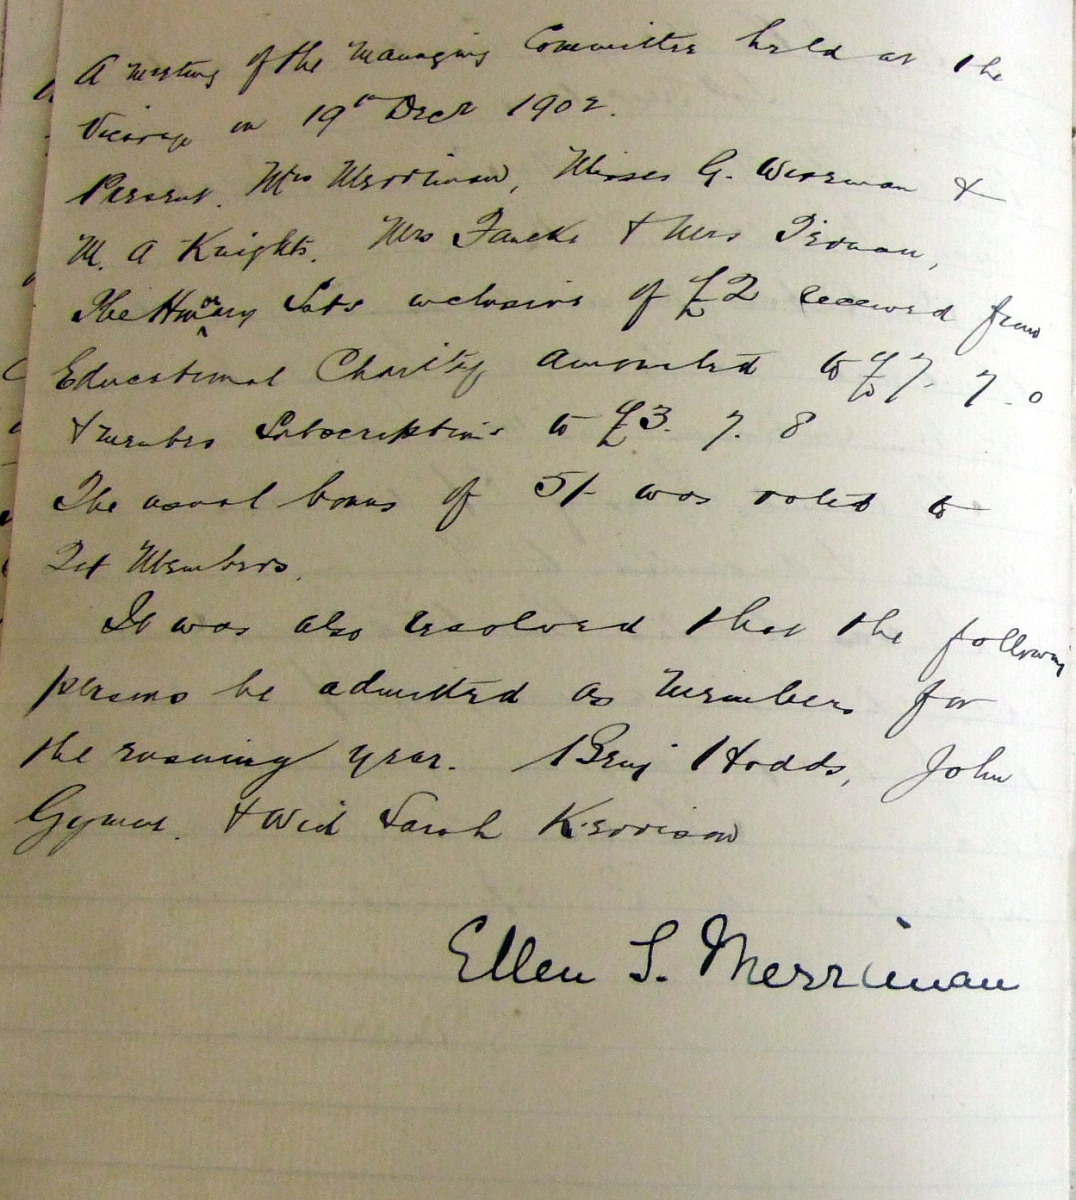 A meeting of the Managing Committee held at the
Vicarage on 19th Decr 1902.
Present. Mrs Merriman, Misses G. Wiseman &
M. A Knights. Mrs & Mrs
The Honorary Subs inclusive of £2 received from
Educational Charity amounted to £7. 7. 0
& members Subscriptions to £3. 7. 8
The usual bonus of 5/- was voted to
Members.
It was also resolved that the following
persons be admitted as Members for
the ensuing year. Benj Hodds, John
Gymer. & Wid Sarah Kerrison
Ellen S. Merriman